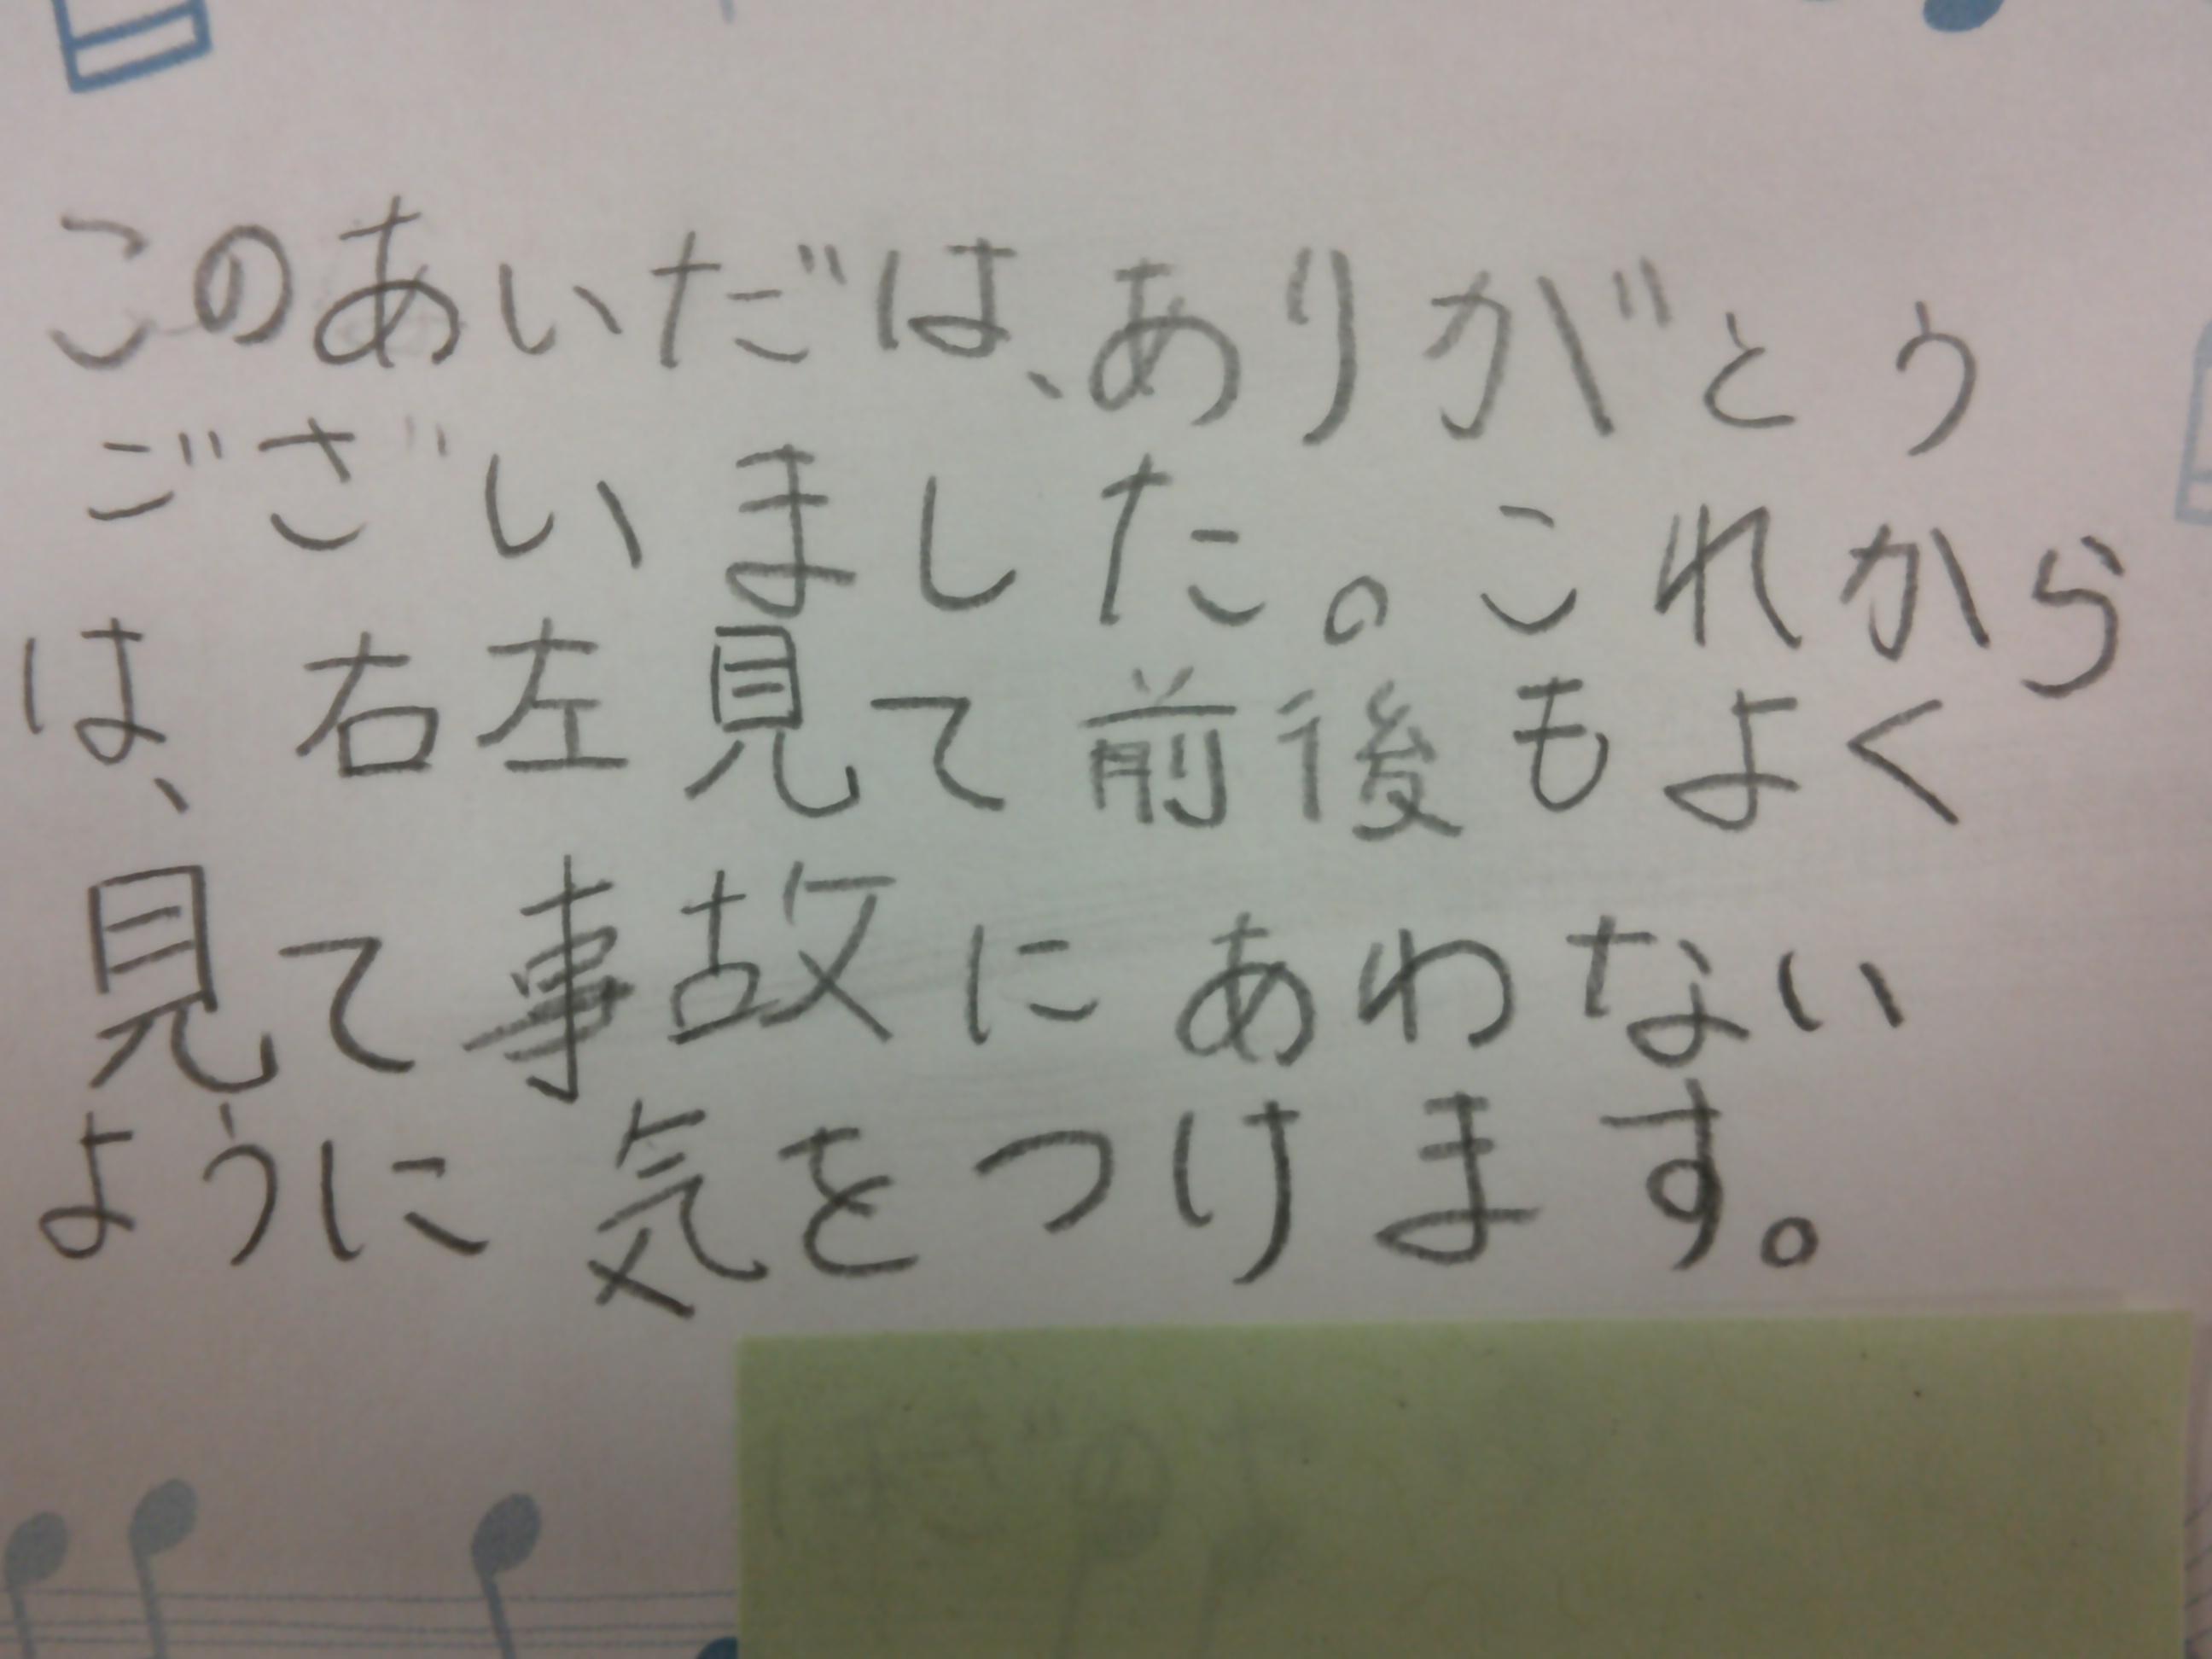 このあいだは、ありがとう
ございました。これから
は、右左見て前後もよく
見て事故にあわない
ように気をつけます。